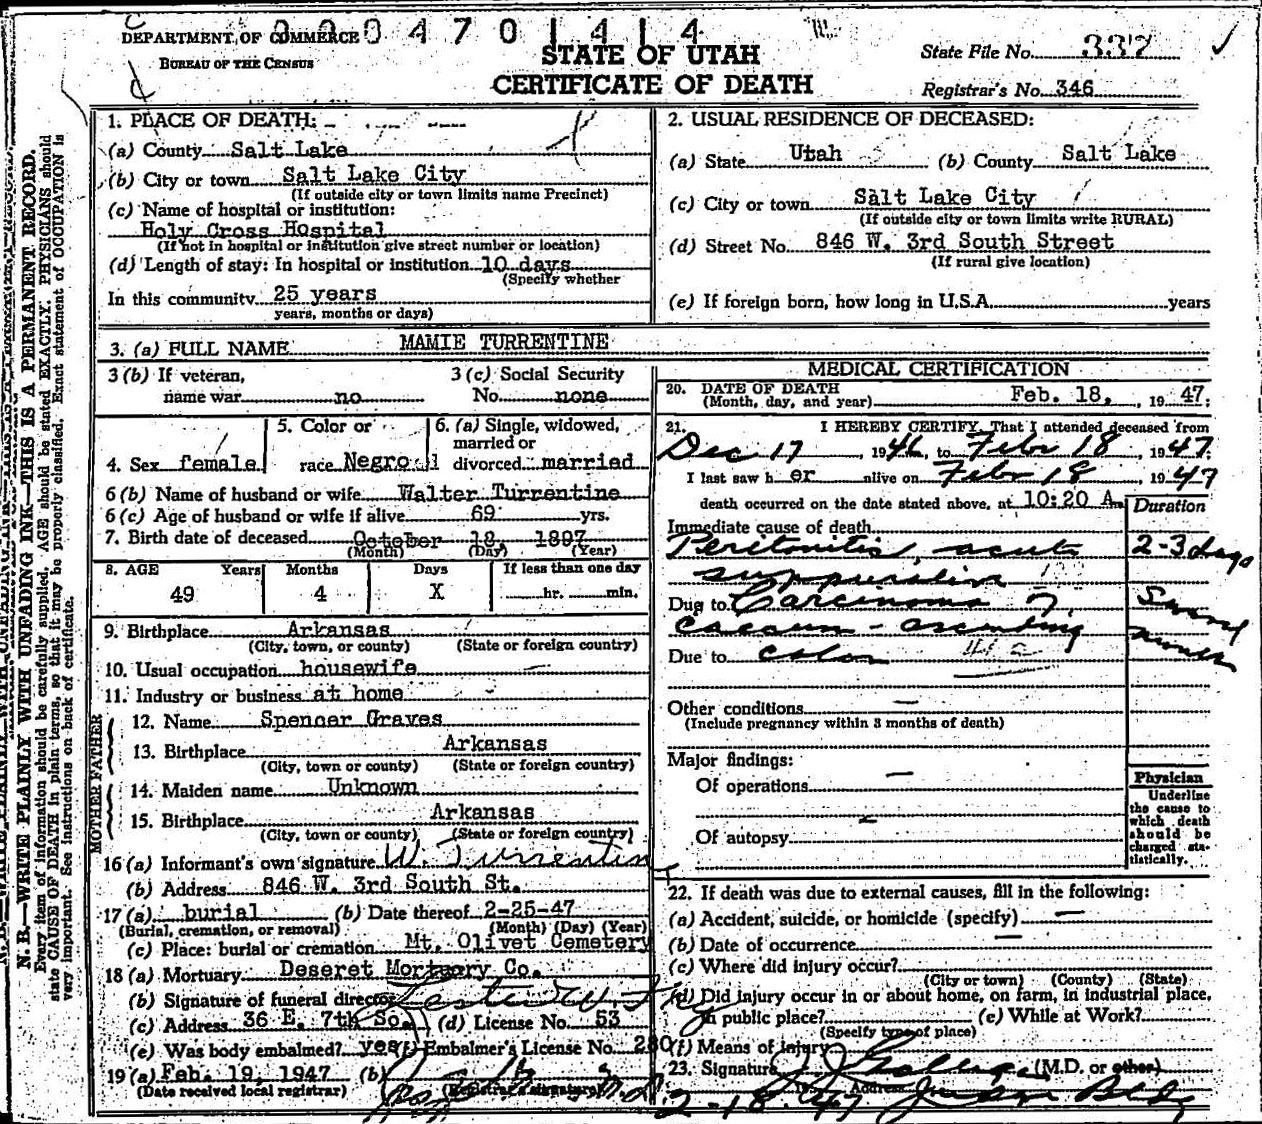 DEPARTMENT OF COMMERCE
BUREAU OF THE CENSUS
4 7 0 1 4 1 4
STATE OF UTAH
CERTIFICATE OF DEATH
State File No. 337
Registrar's No. 346
N. B.—WRITE PLAINLY WITH UNFADING INK—THIS IS A PERMANENT RECORD.
Every item of information should be carefully supplied. AGE should be stated EXACTLY. PHYSICIANS should
state CAUSE OF DEATH in plain terms, so that it may be properly classified. Exact statement of OCCUPATION is
very important. See instructions on back of certificate.
1. PLACE OF DEATH:
(a) County Salt Lake
(b) City or town Salt Lake City
(If outside city or town limits name Precinct)
(c) Name of hospital or institution:
Holy Cross Hospital
(If not in hospital or institution give street number or location)
(d) Length of stay: In hospital or institution 10 days
(Specify whether
In this community 25 years
years, months or days)
2. USUAL RESIDENCE OF DECEASED:
(a) State Utah (b) County Salt Lake
(c) City or town Salt Lake City
(If outside city or town limits write RURAL)
(d) Street No. 846 W. 3rd South Street
(If rural give location)
(e) If foreign born, how long in U.S.A. years
3. (a) FULL NAME MAMIE TURRENTINE
3 (b) If veteran, name war no
3 (c) Social Security No. none
4. Sex female
5. Color or race Negro
6. (a) Single, widowed, married or divorced married
6 (b) Name of husband or wife Walter Turrentine
6 (c) Age of husband or wife if alive 69 yrs.
7. Birth date of deceased October 18, 1897
(Month) (Day) (Year)
8. AGE Years Months Days If less than one day
49 4 X hr. min.
9. Birthplace Arkansas
(City, town, or county) (State or foreign country)
10. Usual occupation housewife
11. Industry or business at home
FATHER
12. Name Spencer Graves
13. Birthplace Arkansas
(City, town or county) (State or foreign country)
MOTHER
14. Maiden name Unknown
15. Birthplace Arkansas
(City, town or county) (State or foreign country)
16 (a) Informant's own signature W. Turrentine
(b) Address 846 W. 3rd South St.
17 (a) burial (b) Date thereof 2-25-47
(Burial, cremation, or removal) (Month) (Day) (Year)
(c) Place: burial or cremation Mt. Olivet Cemetery
18 (a) Mortuary Deseret Mortuary Co.
(b) Signature of funeral director
(c) Address 36 E. 7th So. (d) License No. 53
(e) Was body embalmed? yes (f) Embalmer's License No. 280
19 (a) Feb. 19, 1947 (b)
(Date received local registrar) (Registrar's signature)
MEDICAL CERTIFICATION
20. DATE OF DEATH
(Month, day, and year) Feb. 18, , 19 47;
21. I HEREBY CERTIFY, That I attended deceased from
Dec 17, 1946, to Febr 18, 1947;
I last saw h er alive on Febr 18, 1947
death occurred on the date stated above, at 10:20 A m.
Duration
Immediate cause of death
Peritonitis, acute 2-3 days
suppurative
Due to Carcinoma of Several
caecum - ascending months
Due to colon
Other conditions —
(Include pregnancy within 3 months of death)
Major findings:
Of operations —
Of autopsy —
Physician
Underline
the cause to
which death
should be
charged sta-
tistically.
22. If death was due to external causes, fill in the following:
(a) Accident, suicide, or homicide (specify) —
(b) Date of occurrence —
(c) Where did injury occur?
(City or town) (County) (State)
(d) Did injury occur in or about home, on farm, in industrial place,
in public place? (e) While at Work?
(Specify type of place)
(f) Means of injury
23. Signature (M.D. or other)
2-18-47 Address Judge Bldg